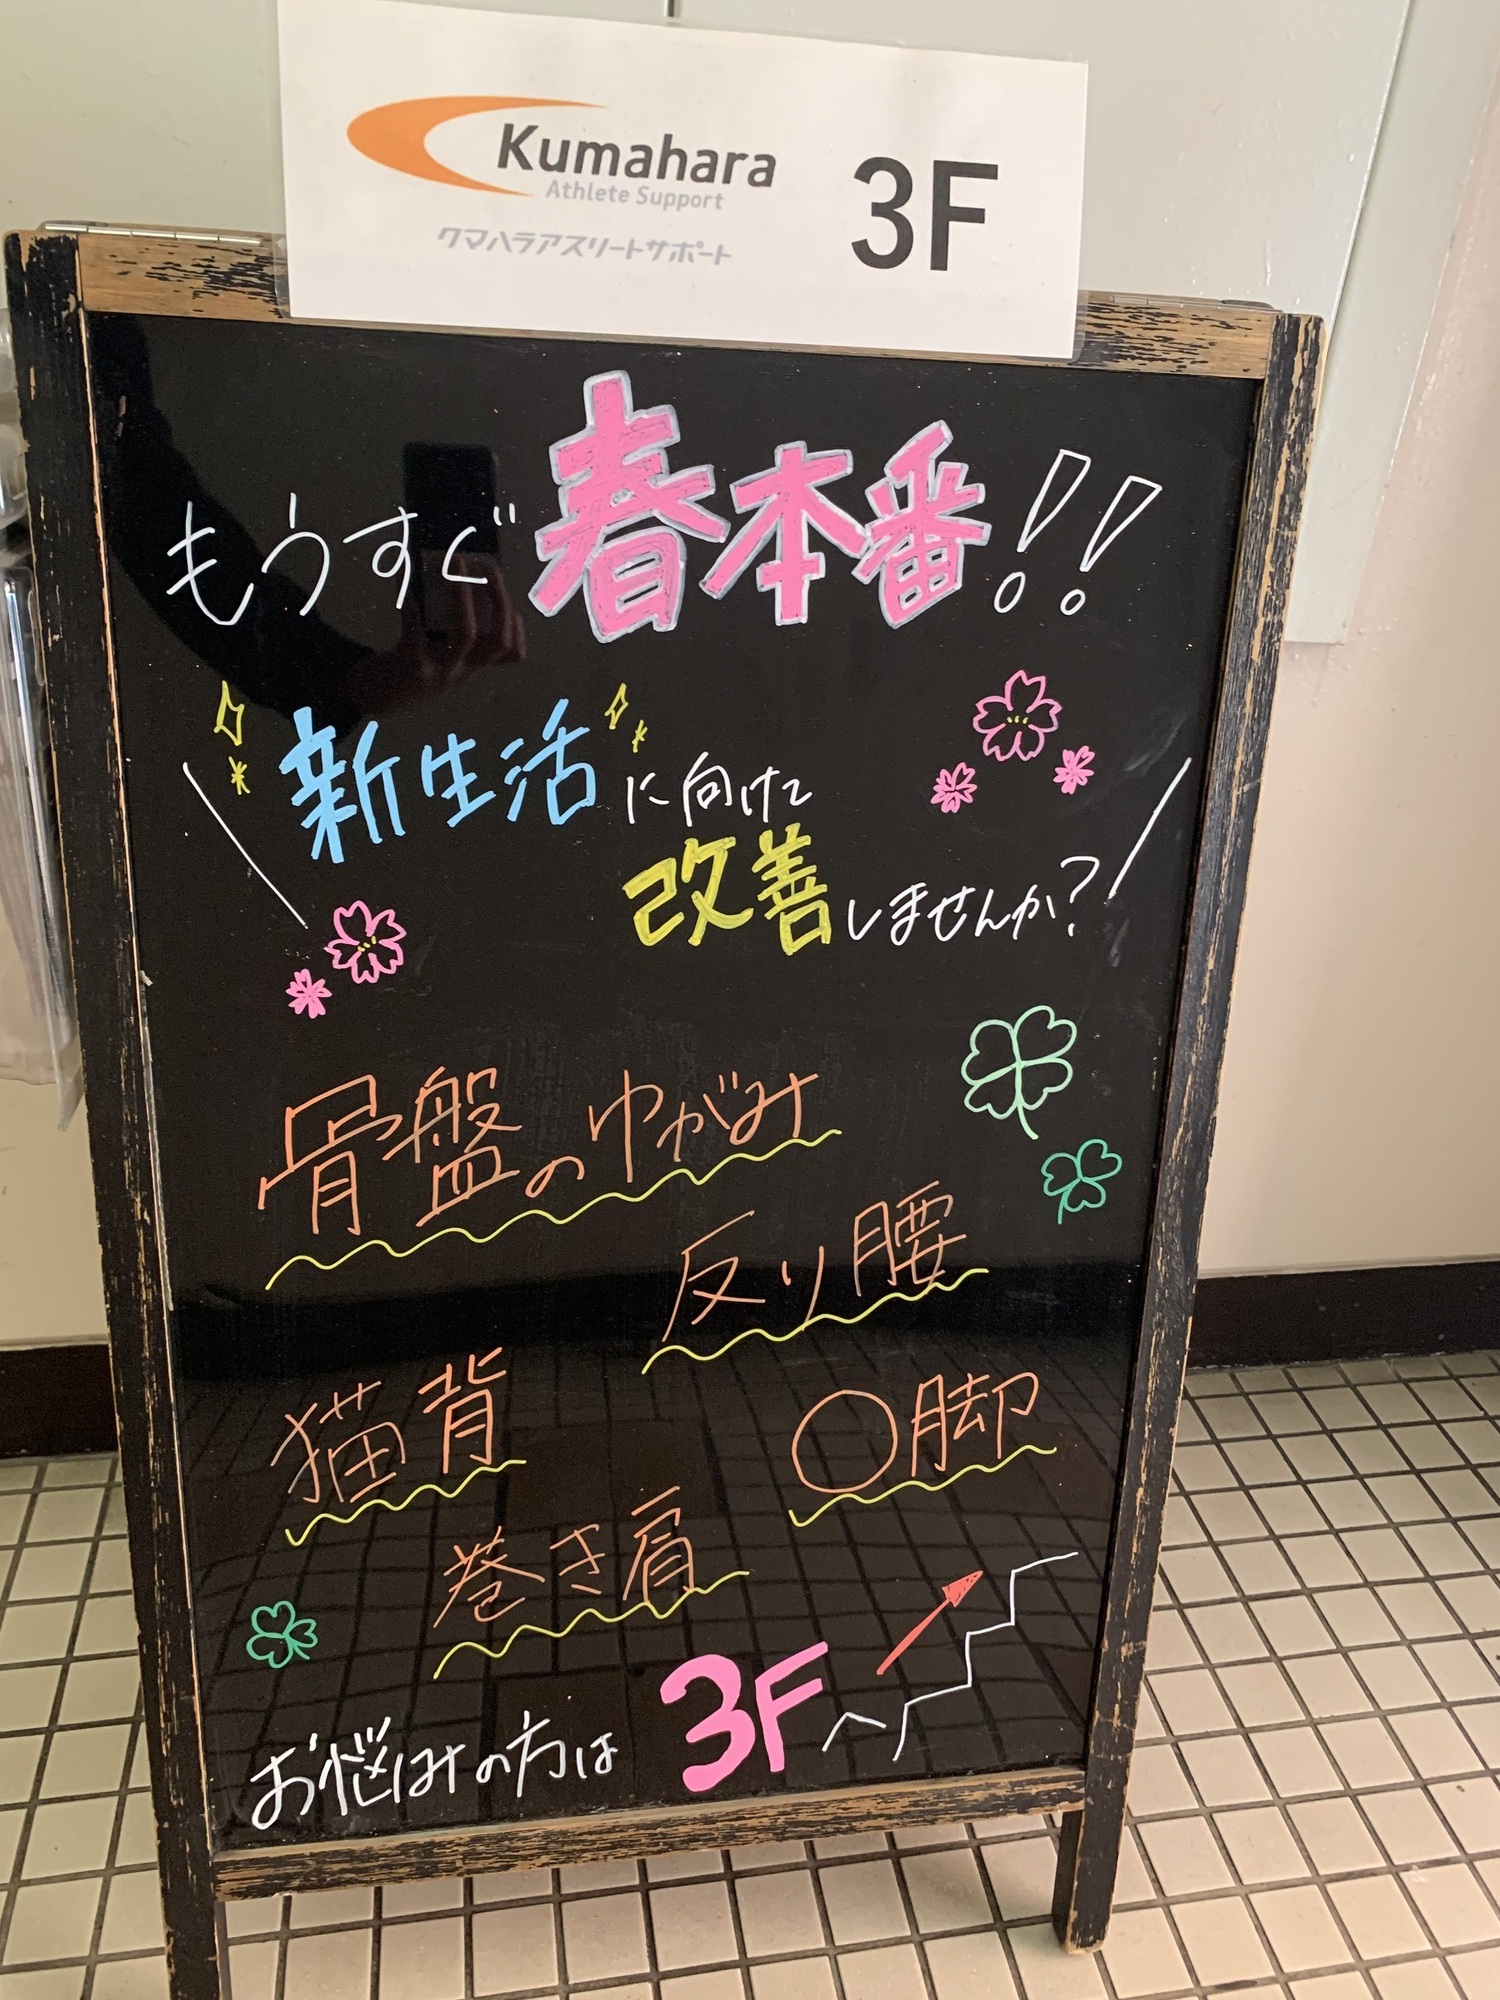 Kumahara
Athlete Support
クマハラアスリートサポート
3F
もうすぐ春本番!!
新生活に向けて
改善しませんか?
骨盤のゆがみ
反り腰
猫背
〇脚
巻き肩
お悩みの方は 3F